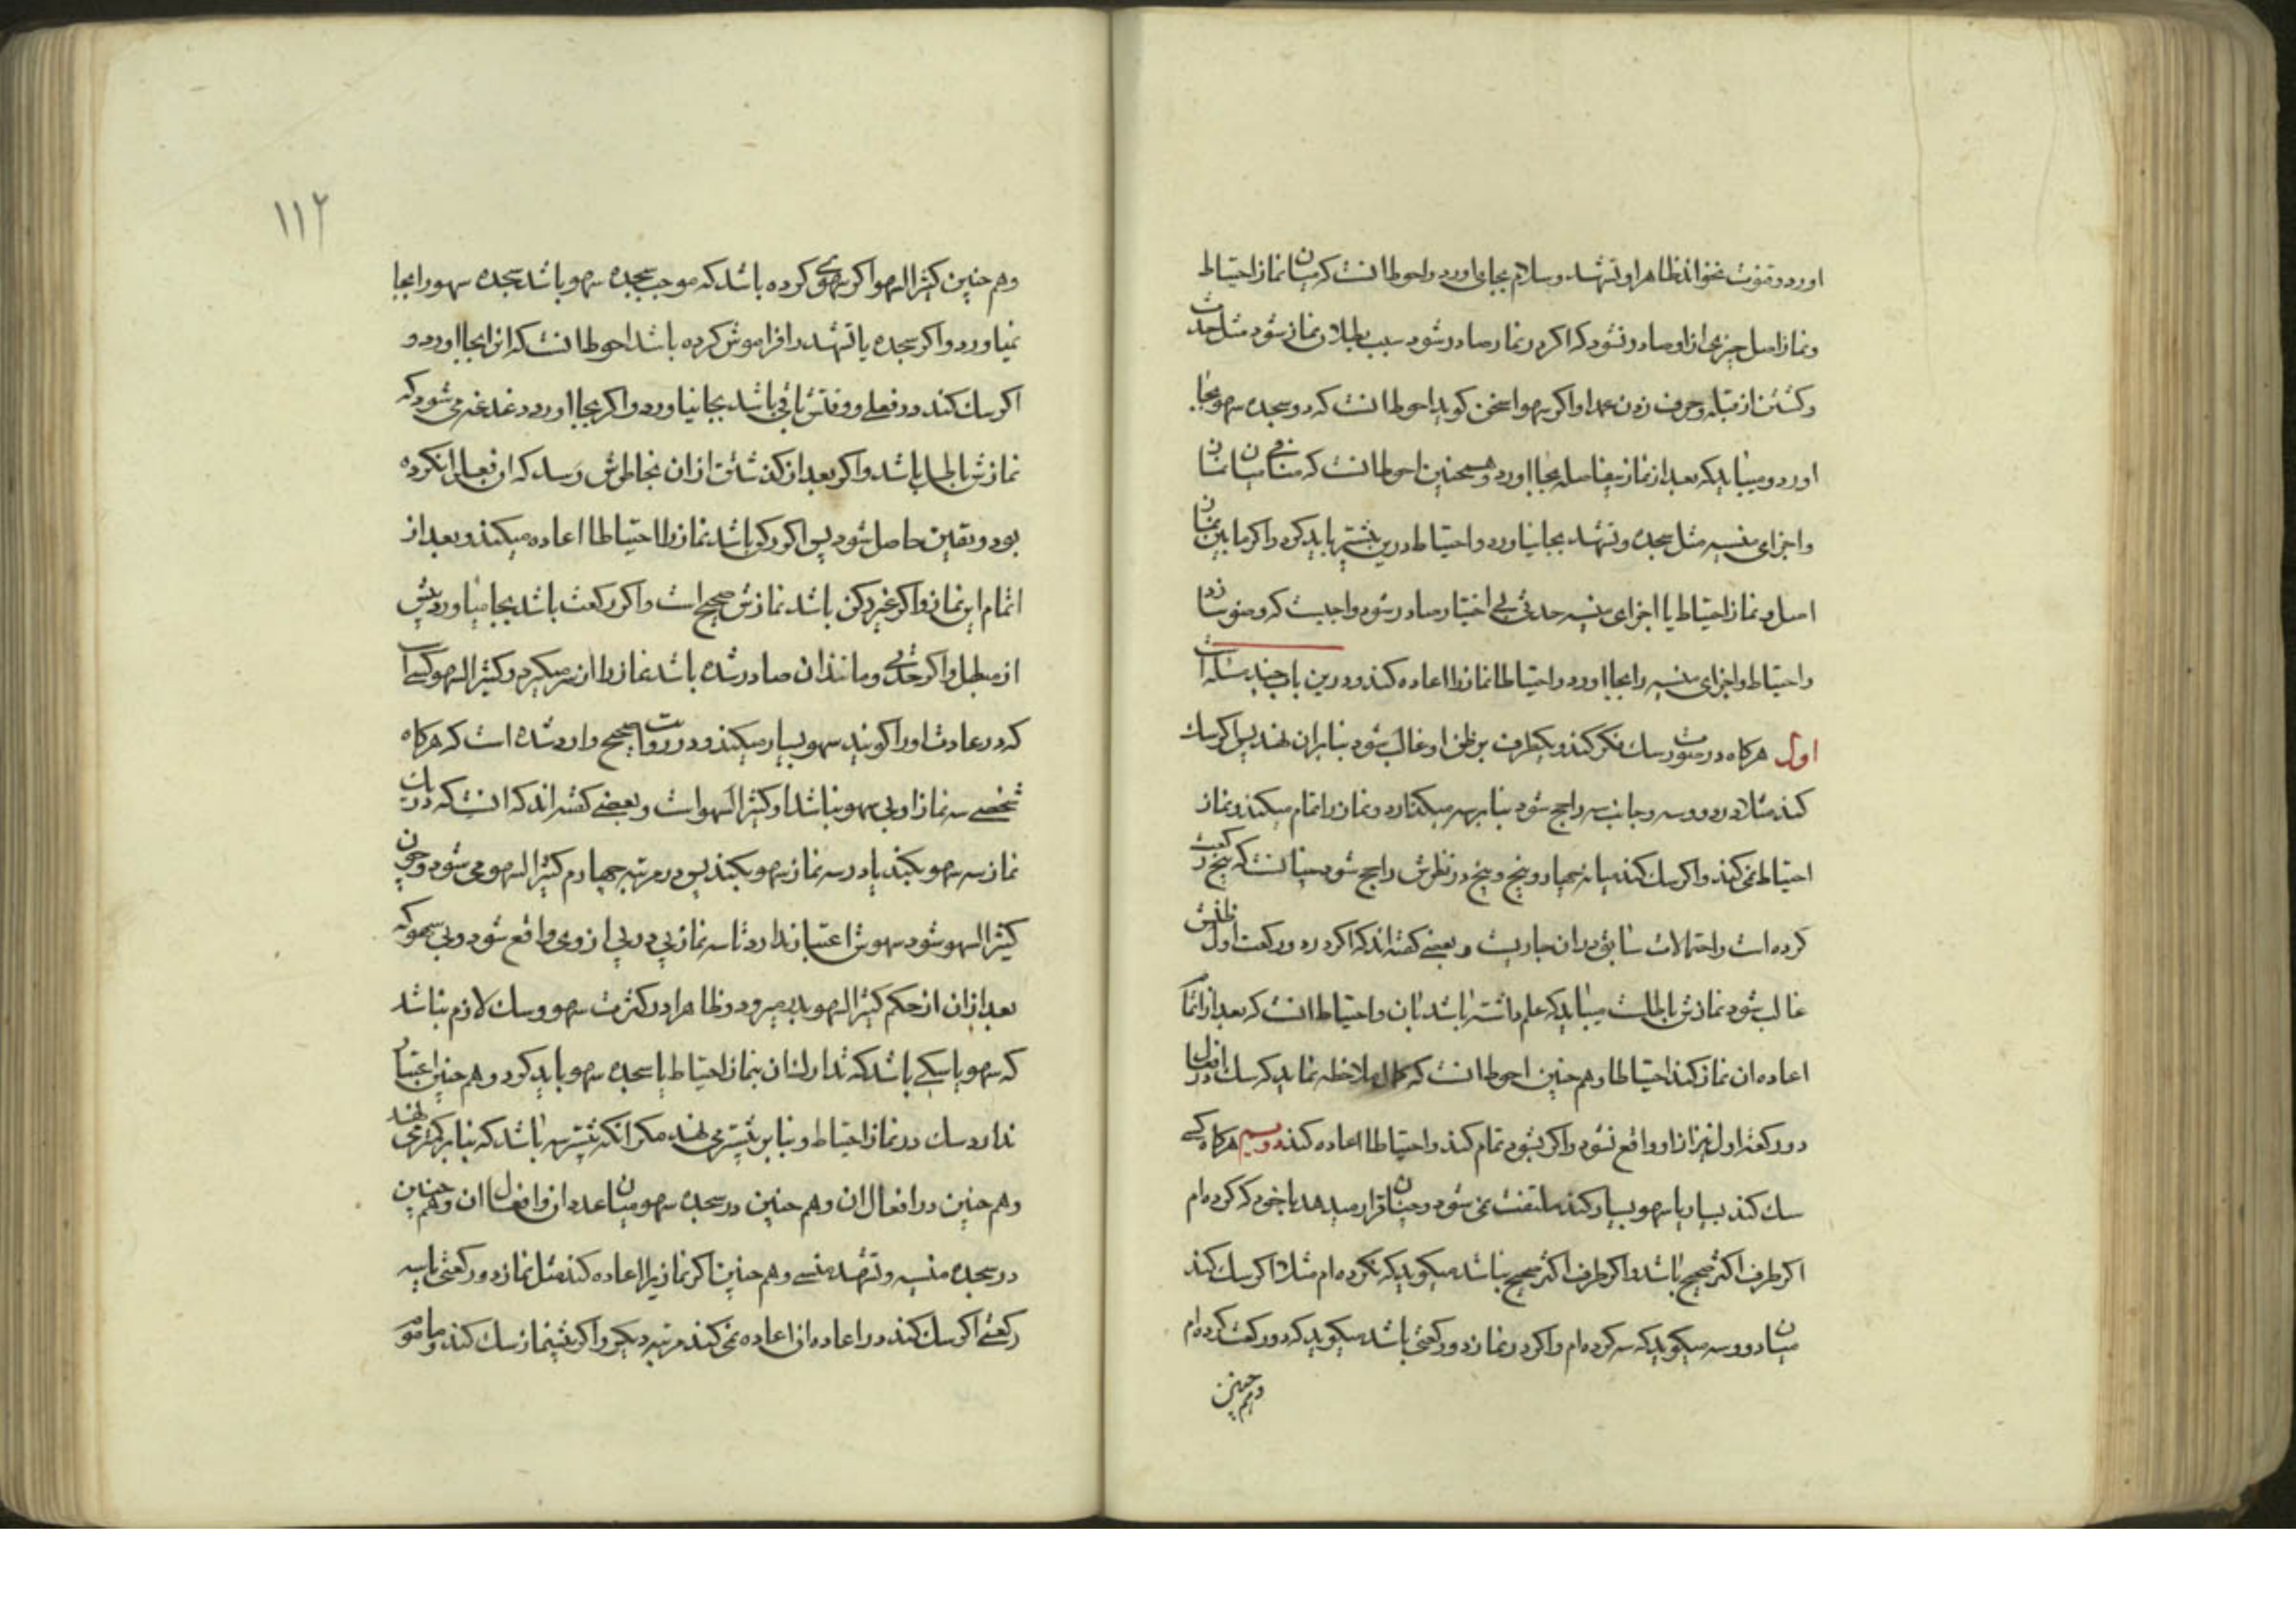 اورد و قنوت نخواند ظاهرا و تشهد و سلام بجای اورد و احوط انست که میان نماز احتیاط
و نماز اصل چیزی از او صادر نشود که اگر در نماز صادر شود سبب بطلان نماز شود مثل حدث
و کشتن از قبله و حرف زدن عمدا و اکر سهوا سخن کوید احوط انست که دو سجده سهو بجا
اورد و میباید که بعد از نماز بیفاصله بجا اورد و همچنین احوط انست که منافی میان نماز
و اجزای منسیه مثل سجده و تشهد بجا نیاورد و احتیاط درین بیشتر باید کرد و اکر مابین نماز
اصل و نماز احتیاط یا اجزای منسیه حدثی بی اختیار صادر شود واجبست که وضو سازد
و احتیاط و اجزای منسیه را بجا اورد و احتیاطا نماز را اعاده کند و درین باب چند مسئله است
اول هرکاه در صورت شک فکر کند و یکطرف بر ظن او غالب شود بنا بران نهد پس اکر شک
کند مثلا در دو و سه و جانب سه راجح شود بنا بر سه میکذارد و نماز را تمام میکند و نماز
احتیاط نمی کند و اکر شک کند میانه چهار و پنج و پنج در نظرش راجح شود چنانست که پنج رکعت
کرده است و احتمالات سابق دران جاریست و بعضی کفته اند که اکر در دو رکعت اول ظنش
غالب شود نمازش باطلست میباید که علم داشته باشد بان و احتیاط انست که بعد از اتمام
اعاده ان نماز کند احتیاطا و هم چنین احوط انست که ملاحظه نماید که شک در افعال
دو رکعت اول نیز از او واقع نشود و اکر بشود تمام کند و احتیاطا اعاده کند دویم هرکاه کسی
شک کند بسیار یا سهو بسیار کند ملتفت نمی شود و چنان قرار میدهد با خود که کرده ام
اکر طرف اکثر صحیح باشد و اکر طرف اکثر صحیح نباشد میکوید که نکرده ام مثلا اکر شک کند
میان دو و سه میکوید که سه کرده ام و اکر در نماز دو رکعتی باشد میکوید که دو رکعت کرده ام
و هم چنین
۱۱۲
و هم چنین کثیر السهو اکر سهوی کرده باشد که موجب سجده سهو باشد سجده سهو را بجا
نمیاورد و اکر سجده یا تشهد را فراموش کرده باشد احوط انست که انرا بجا اورد و
اکر شک کند در فعلی و وقتش باقی باشد بجا نیاورد و اکر بجا اورد دغدغه می شود که
نمازش باطل باشد و اکر بعد از کذشتن ازان بخاطرش رسد که ان فعل را نکرده
بود و یقین حاصل شود پس اکر رکن باشد نماز را احتیاطا اعاده میکند و بعد از
اتمام این نماز و اکر غیر رکن باشد نمازش صحیح است و اکر رکعت باشد بجا میاورد پیش
از مبطل و اکر حدثی و مانند ان صادر شده باشد نماز را از سر میکیرد و کثیر السهو کسی است
که در عادت او را کویند سهو بسیار میکند و در روایت صحیح وارد شده است که هرکاه
شخصی سه نماز او بی سهو نباشد او کثیر السهو است و بعضی کفته اند که انست که در یک
نماز سه سهو بکند یا در سه نماز سهو بکند پس در مرتبه چهارم کثیر السهو می شود و چون
کثیر السهو شود سهوش اعتبار ندارد تا سه نماز پی در پی از وی واقع شود و بی سهو که
بعد ازان از حکم کثیر السهو بدر میرود و ظاهرا در کثرت سهو و شک لازم نباشد
که سهو یا شکی باشد که تدارک ان بنماز احتیاط یا سجده سهو باید کرد و هم چنین اعتبار
ندارد شک در نماز احتیاط و بنا بر بیشتر می نهد مکر انکه بیشتر سه باشد که بنا بر کمتر می نهد
و هم چنین در افعال ان و هم چنین در سجده سهو میان عدد ان و افعال ان و هم چنین
در سجده منسیه و تشهد منسی و هم چنین اکر نمازی را اعاده کند مثل نماز دو رکعتی یا سه
رکعتی اکر شک کند در اعاده ان اعاده نمی کند مرتبه دیکر و اکر پیشنماز شک کند و ماموم